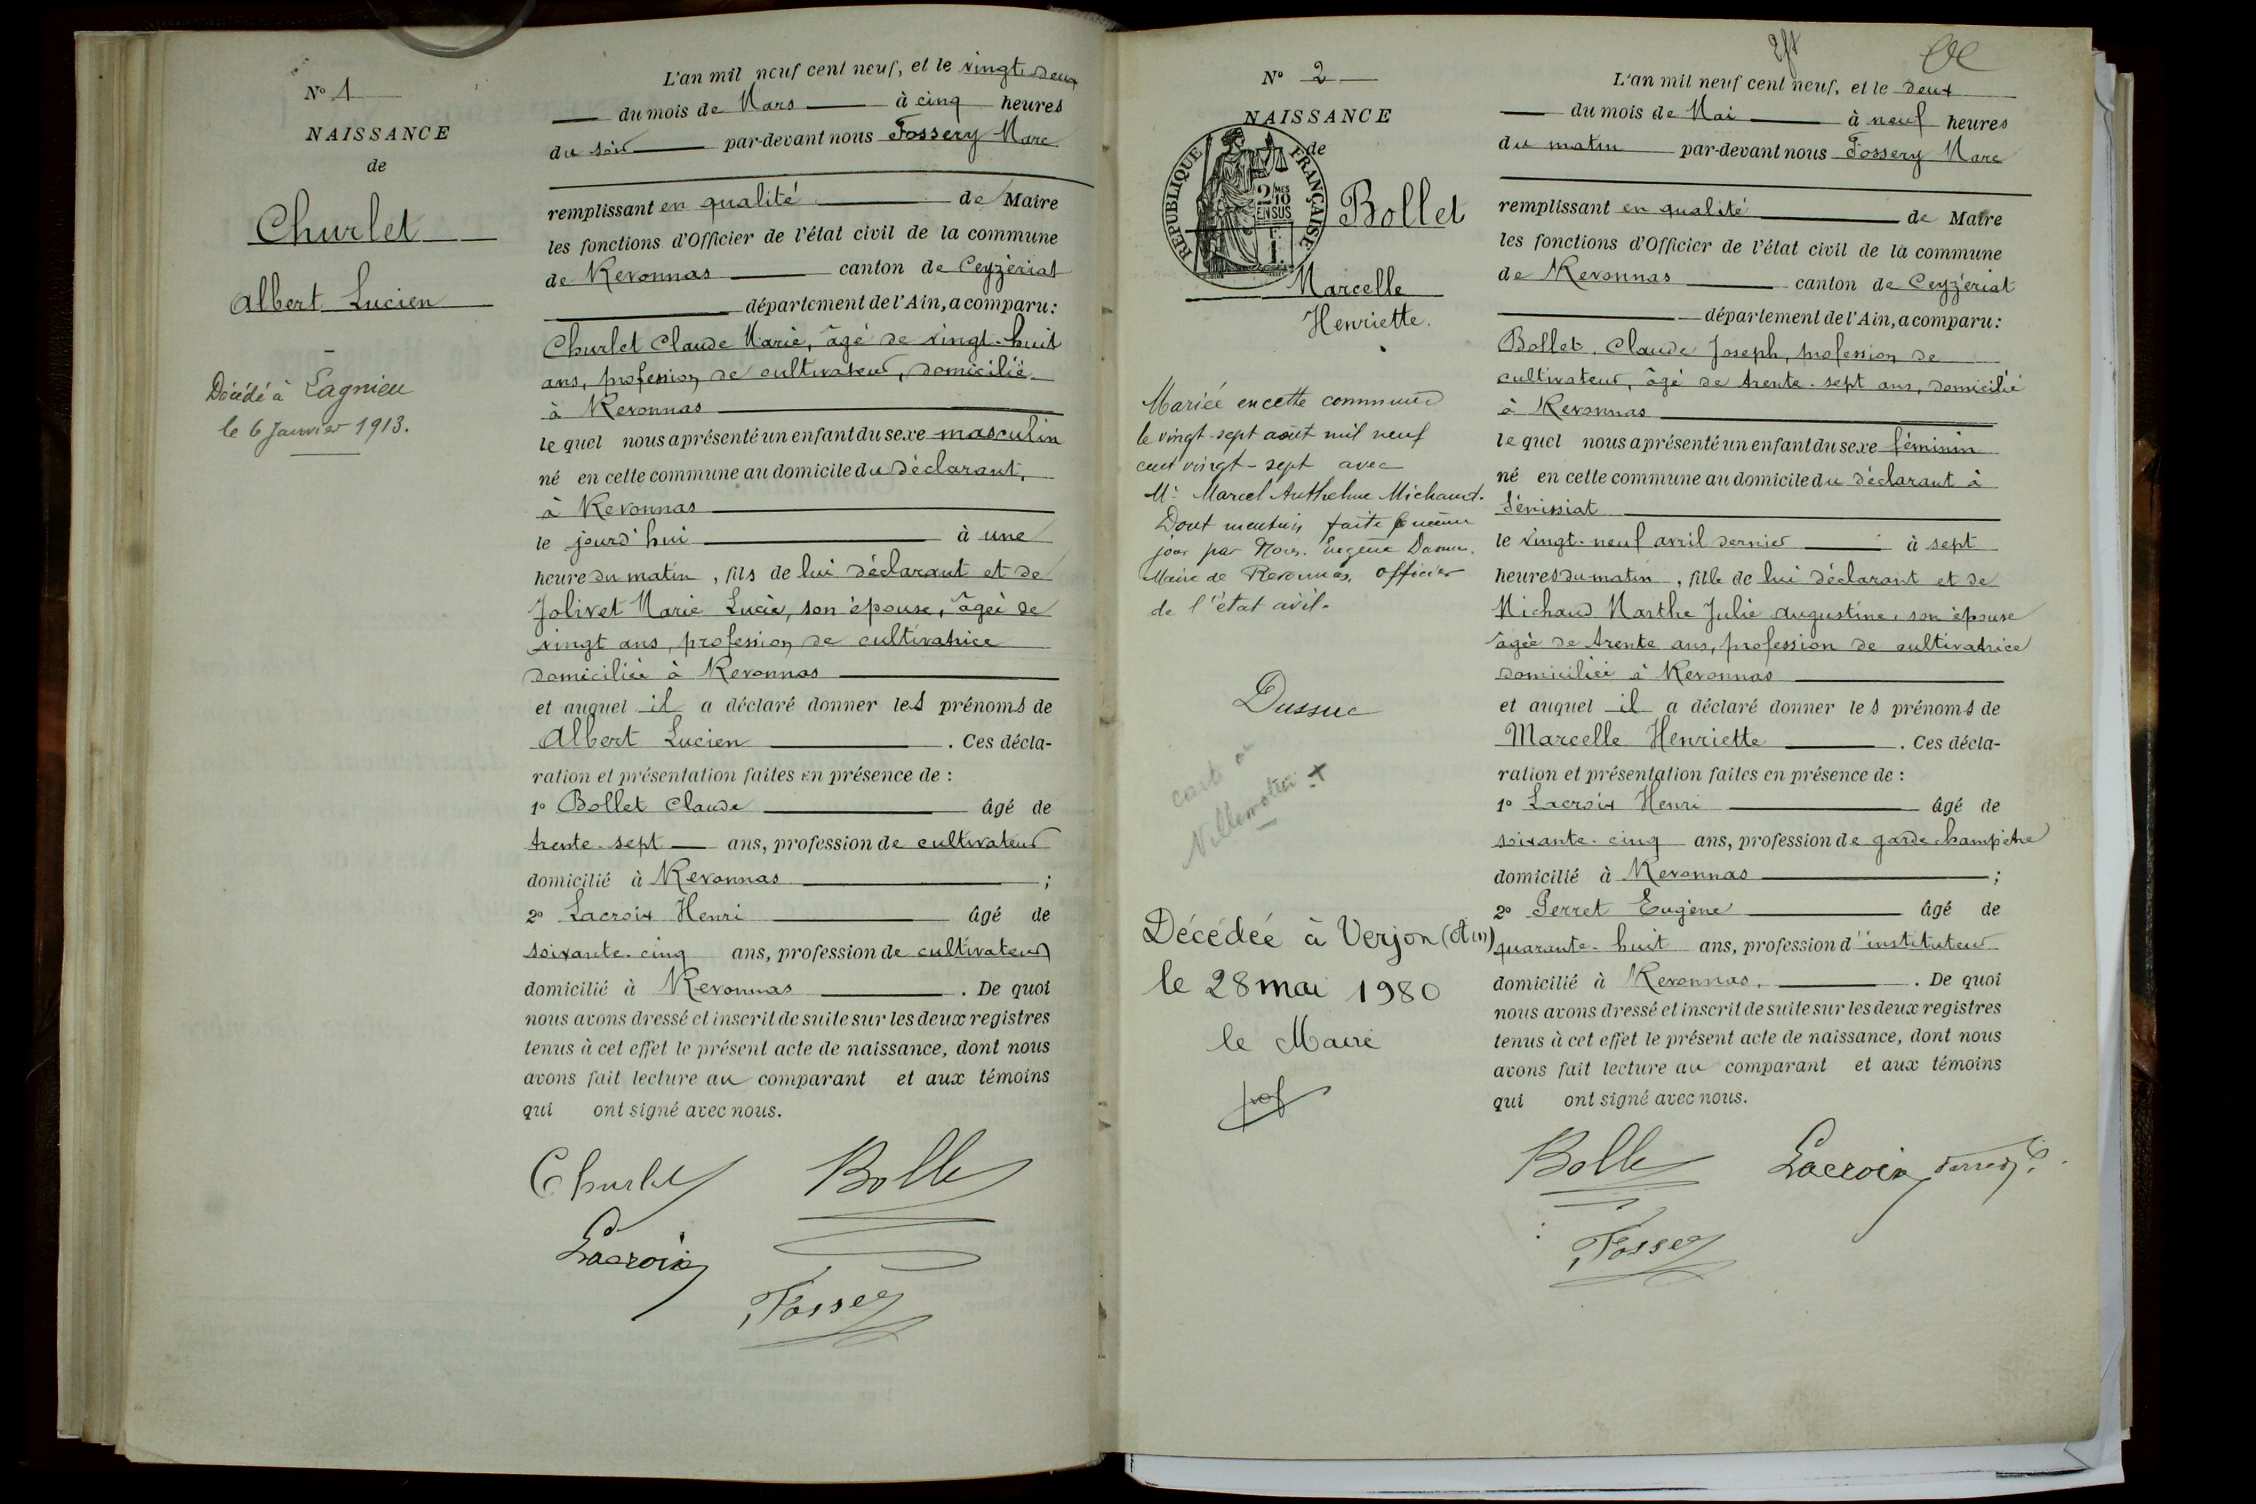 Nº 1
NAISSANCE
de
Churlet
Albert Lucien
Décédé à Lagnieu
le 6 Janvier 1913.
L'an mil neuf cent neuf, et le vingt-deux
du mois de Mars à cinq heures
du soir par-devant nous Fossery Marc
remplissant en qualité de Maire
les fonctions d'Officier de l'état civil de la commune
de Revonnas canton de Ceyzériat
département de l'Ain, a comparu :
Churlet Claude Marie, âgé de vingt-huit
ans, profession de cultivateur, domicilié
à Revonnas
lequel nous a présenté un enfant du sexe masculin
né en cette commune au domicile du déclarant,
à Revonnas
le jourd'hui à une
heure du matin, fils de lui déclarant et de
Jolivet Marie Lucie, son épouse, âgée de
vingt ans, profession de cultivatrice
domiciliée à Revonnas
et auquel il a déclaré donner les prénoms de
Albert Lucien. Ces décla-
ration et présentation faites en présence de :
1º Bollet Claude âgé de
trente-sept ans, profession de cultivateur
domicilié à Revonnas ;
2º Lacroix Henri âgé de
soixante-cinq ans, profession de cultivateur
domicilié à Revonnas. De quoi
nous avons dressé et inscrit de suite sur les deux registres
tenus à cet effet le présent acte de naissance, dont nous
avons fait lecture au comparant et aux témoins
qui ont signé avec nous.
Churlet Bollet
Lacroix
Fossery
Nº 2
NAISSANCE
de
RÉPUBLIQUE FRANÇAISE
2/10 MES
EN SUS
Bollet
Marcelle
Henriette.
Mariée en cette commune
le vingt-sept août mil neuf
cent vingt-sept avec
Mr Marcel Anthelme Michaud.
Dont mention faite ce même
jour par Nous, Eugène
Maire de Revonnas, officier
de l'état civil.
Dussuc
carte à
Villemotier x
Décédée à Verjon (Ain)
le 28 mai 1980
le Maire
L'an mil neuf cent neuf, et le deux
du mois de Mai à neuf heures
du matin par-devant nous Fossery Marc
remplissant en qualité de Maire
les fonctions d'Officier de l'état civil de la commune
de Revonnas canton de Ceyzériat
département de l'Ain, a comparu :
Bollet, Claude Joseph, profession de
cultivateur, âgé de trente-sept ans, domicilié
à Revonnas
lequel nous a présenté un enfant du sexe féminin
né en cette commune au domicile du déclarant à
Sénissiat
le vingt-neuf avril dernier à sept
heures du matin, fille de lui déclarant et de
Michaud Marthe Julie Augustine, son épouse
âgée de trente ans, profession de cultivatrice
domiciliée à Revonnas
et auquel il a déclaré donner les prénoms de
Marcelle Henriette. Ces décla-
ration et présentation faites en présence de :
1º Lacroix Henri âgé de
soixante-cinq ans, profession de garde champêtre
domicilié à Revonnas ;
2º Perret Eugène âgé de
quarante-huit ans, profession d'instituteur
domicilié à Revonnas. De quoi
nous avons dressé et inscrit de suite sur les deux registres
tenus à cet effet le présent acte de naissance, dont nous
avons fait lecture au comparant et aux témoins
qui ont signé avec nous.
Bollet Lacroix Perret E.
Fossery